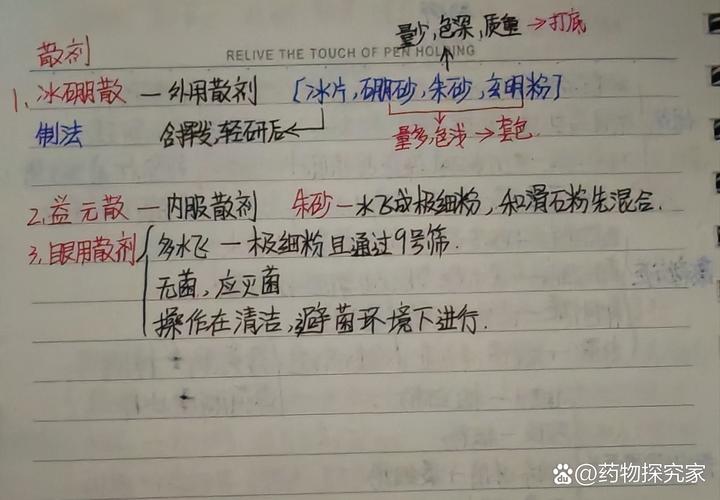 量少,色深,质重→打底
散剂
RELIVE THE TOUCH OF PEN HOLDING
1、冰硼散 — 外用散剂 [冰片,硼砂,朱砂,玄明粉]
制法 含挥发,轻研后← 量多,色浅→套色.
2、益元散 — 内服散剂 朱砂—水飞成极细粉,和滑石粉先混合.
3、眼用散剂 { 多水飞 — 极细粉且通过9号筛.
无菌,应灭菌
操作在清洁,避菌环境下进行.
药物探究家